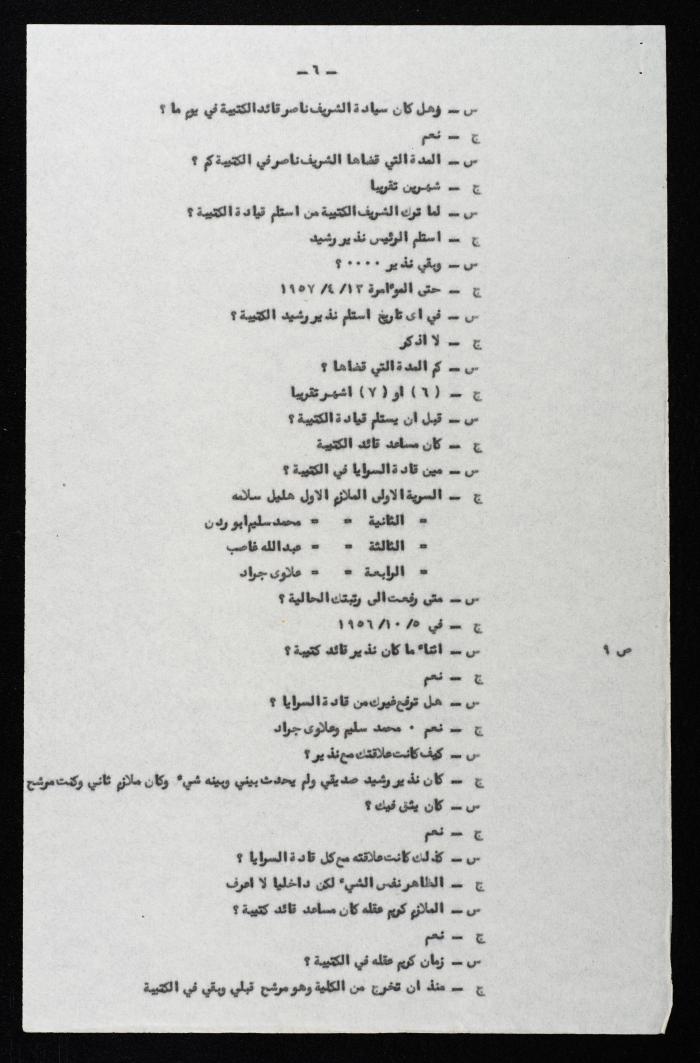 – ٦ –
س – وهل كان سيادة الشريف ناصر قائد الكتيبة في يوم ما ؟
ج – نعم
س – المدة التي قضاها الشريف ناصر في الكتيبة كم ؟
ج – شهرين تقريبا
س – لما ترك الشريف الكتيبة من استلم قيادة الكتيبة ؟
ج – استلم الرئيس نذير رشيد
س – وبقي نذير ٠٠٠٠ ؟
ج – حتى المؤامرة ١٣/ ٤/ ١٩٥٧
س – في اى تاريخ استلم نذير رشيد الكتيبة ؟
ج – لا اذكر
س – كم المدة التي قضاها ؟
ج – (٦) او (٧) اشهر تقريبا
س – قبل ان يستلم قيادة الكتيبة ؟
ج – كان مساعد قائد الكتيبة
س – مين قادة السرايا في الكتيبة ؟
ج – السرية الاولى الملازم الاول هليل سلامه
= الثانية = = محمد سليم ابو ردن
= الثالثة = = عبدالله غاصب
= الرابعة = = علاوى جراد
س – متى رفعت الى رتبتك الحالية ؟
ج – في ٥/ ١٠/ ١٩٥٦
س – اثناء ما كان نذير قائد كتيبة ؟ ص ٩
ج – نعم
س – هل ترفع غيرك من قادة السرايا ؟
ج – نعم ٠ محمد سليم وعلاوى جراد
س – كيف كانت علاقتك مع نذير ؟
ج – كان نذير رشيد صديقي ولم يحدث بيني وبينه شيء وكان ملازم ثاني وكنت مرشح
س – كان يثق فيك ؟
ج – نعم
س – كذلك كانت علاقته مع كل قادة السرايا ؟
ج – الظاهر نفس الشيء لكن داخليا لا اعرف
س – الملازم كريم عقله كان مساعد قائد كتيبة ؟
ج – نعم
س – زمان كريم عقله في الكتيبة ؟
ج – منذ ان تخرج من الكلية وهو مرشح قبلي وبقي في الكتيبة